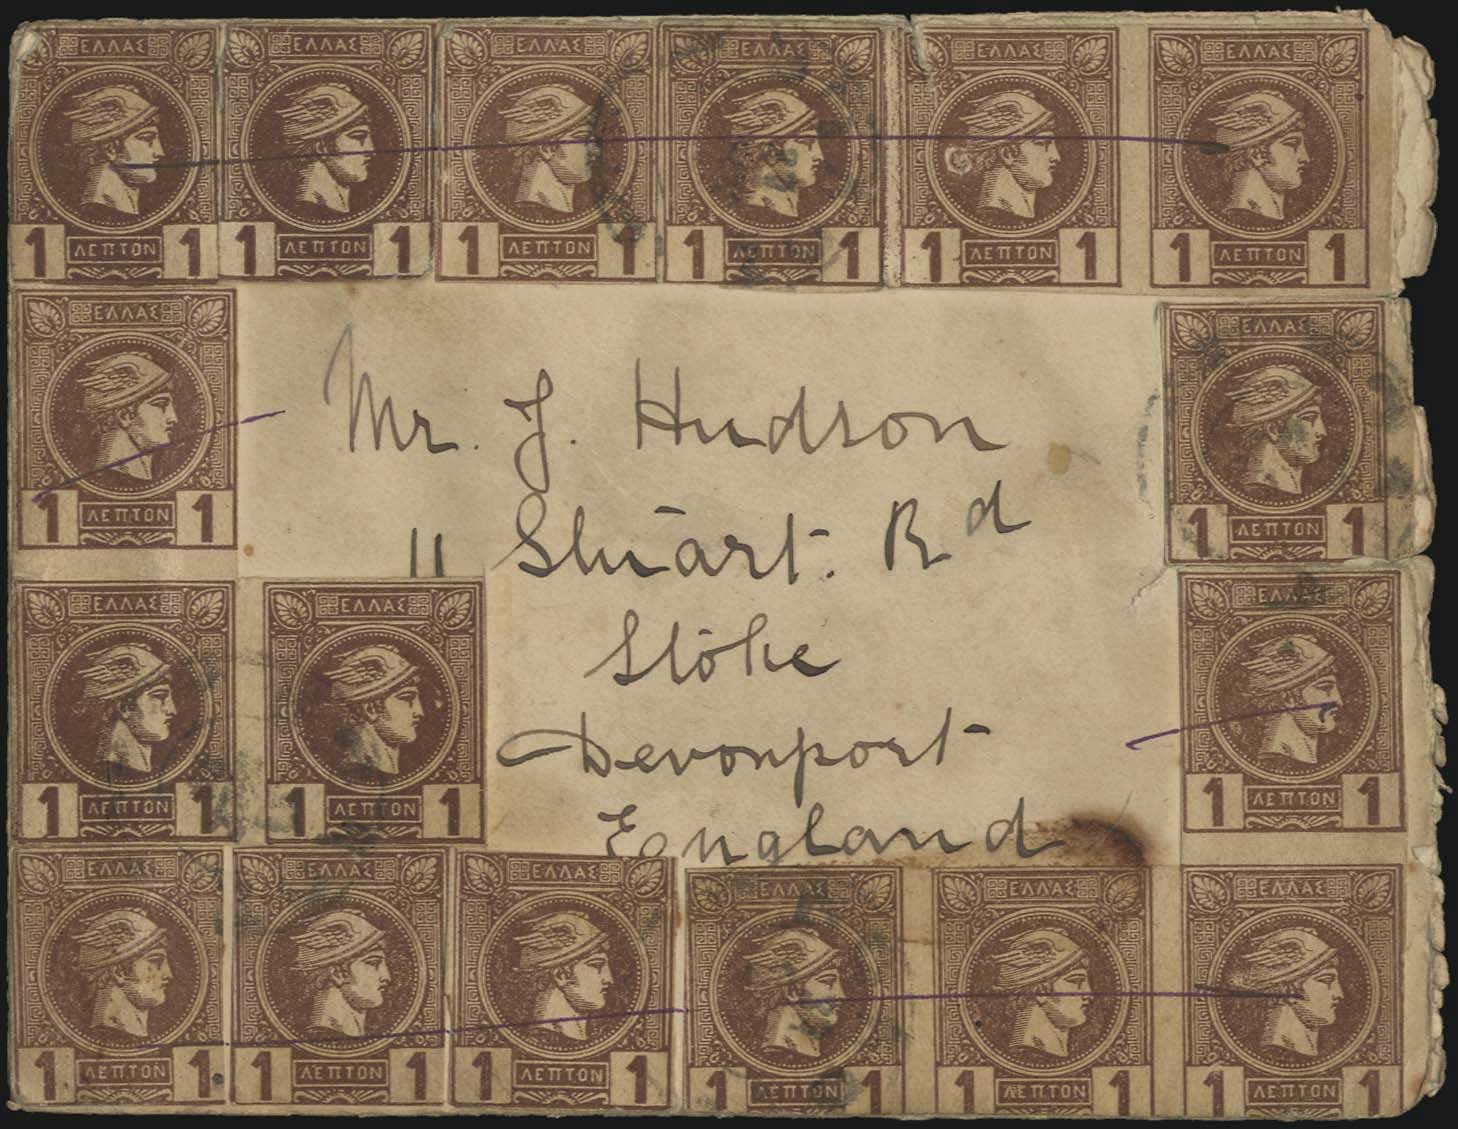 ΕΛΛΑΣ ΕΛΛΑΣ ΕΛΛΑΣ ΕΛΛΑΣ ΕΛΛΑΣ ΕΛΛΑΣ
1 ΛΕΠΤΟΝ 1 1 ΛΕΠΤΟΝ 1 1 ΛΕΠΤΟΝ 1 1 ΛΕΠΤΟΝ 1 1 ΛΕΠΤΟΝ 1 1 ΛΕΠΤΟΝ 1
ΕΛΛΑΣ
1 ΛΕΠΤΟΝ 1
ΕΛΛΑΣ ΕΛΛΑΣ
1 ΛΕΠΤΟΝ 1 1 ΛΕΠΤΟΝ 1
Mr. J. Hudson
11 Stuart. Rd
Stoke
Devonport
England
ΕΛΛΑΣ
1 ΛΕΠΤΟΝ 1
ΕΛΛΑΣ
1 ΛΕΠΤΟΝ 1
ΕΛΛΑΣ ΕΛΛΑΣ ΕΛΛΑΣ ΕΛΛΑΣ ΕΛΛΑΣ ΕΛΛΑΣ
1 ΛΕΠΤΟΝ 1 1 ΛΕΠΤΟΝ 1 1 ΛΕΠΤΟΝ 1 1 ΛΕΠΤΟΝ 1 1 ΛΕΠΤΟΝ 1 1 ΛΕΠΤΟΝ 1